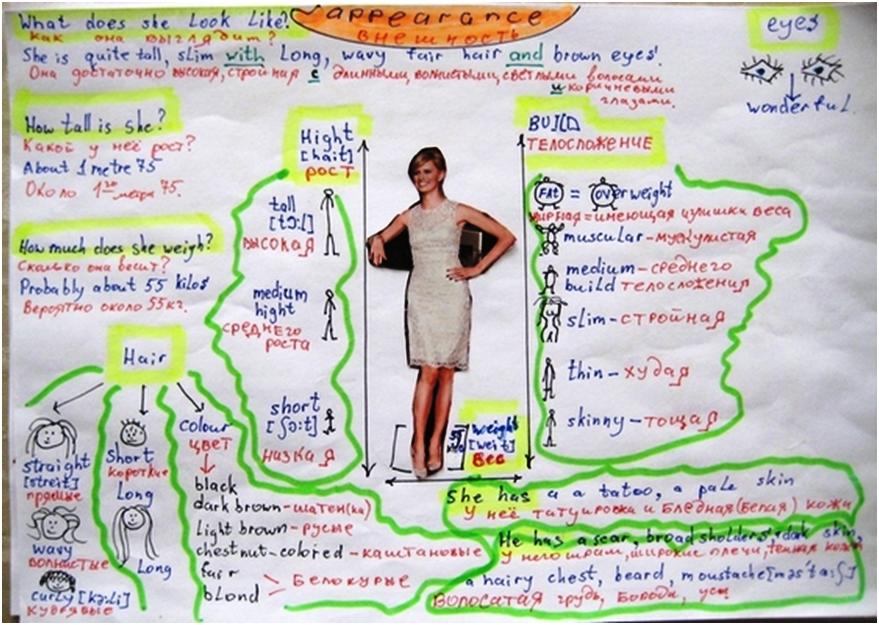 What does she look like?
appearance
Как она выглядит?
внешность
She is quite tall, slim with long, wavy fair hair and brown eyes.
Она достаточно высокая, стройная с длинными волнистыми, светлыми волосами
и коричневыми
глазами.
eyes
wonderful.
How tall is she?
Какой у неё рост?
About 1 metre 75
Около 1го метра 75.
How much does she weigh?
Сколько она весит?
Probably about 55 kilos
Вероятно около 55кг.
Hight
[hait]
рост
tall
[tɔ:l]
высокая
medium
hight
среднего
роста
short
[ʃɔ:t]
низкая
weight
[weit]
вес
BUILD
телосложение
FAt = OVerweight
жирная = имеющая излишки веса
muscular – мускулистая
medium – среднего
build телосложения
slim – стройная
thin – худая
skinny – тощая
Hair
straight
[streit]
прямые
wavy
волнистые
curly [kə:li]
кудрявые
Short
короткие
Long
Long
colour
цвет
black
dark brown – шатен(ка)
Light brown – русые
chestnut-colored – каштановые
fair
blond
Белокурые
She has a a tatoo, a pale skin
У неё татуировка и Бледная(белая) кожа
He has a scar, broad sholders, dark skin,
У него шрам, широкие плечи, темная кожа
a hairy chest, beard, moustache [məs'ta:ʃ]
Волосатая грудь, Борода, усы